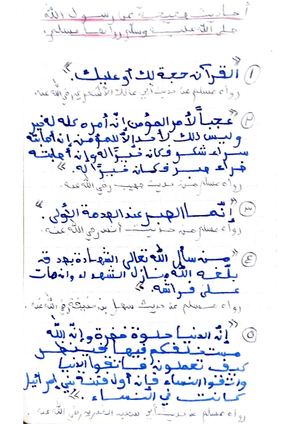 أحاديث صحيحة عن رسول الله
صلى الله عليه وسلم رواها مسلم.
١ «القرآن حجة لك أو عليك.»
رواه مسلم عن حديث أبي مالك الأشعري رضي الله عنه.
٢ «عجباً لأمر المؤمن إنّ أمره كله له خير
وليس ذلك لأحد إلا للمؤمن إن أصابته
سراء شكر فكان خيرًا له وإن أصابته
ضراء صبر فكان خيرًا له.»
رواه مسلم من حديث صهيب رضي الله عنه.
٣ «إنّما الصبر عند الصدمة الأولى.»
رواه مسلم من حديث أنس رضي الله عنه.
٤ «من سأل الله تعالى الشهادة بصدق
بلغه الله منازل الشهداء وإن مات
على فراشه.»
رواه مسلم عن حديث سهل بن حنيف رضي الله عنه.
٥ «إنّ الدنيا حلوة خضرة وإنّ الله
مستخلفكم فيها فينظر
كيف تعملون فاتقوا الدنيا
واتقوا النساء فإن أول فتنة بني إسرائيل
كانت في النساء.»
رواه مسلم عن حديث أبي سعيد الخدري رضي الله عنه.